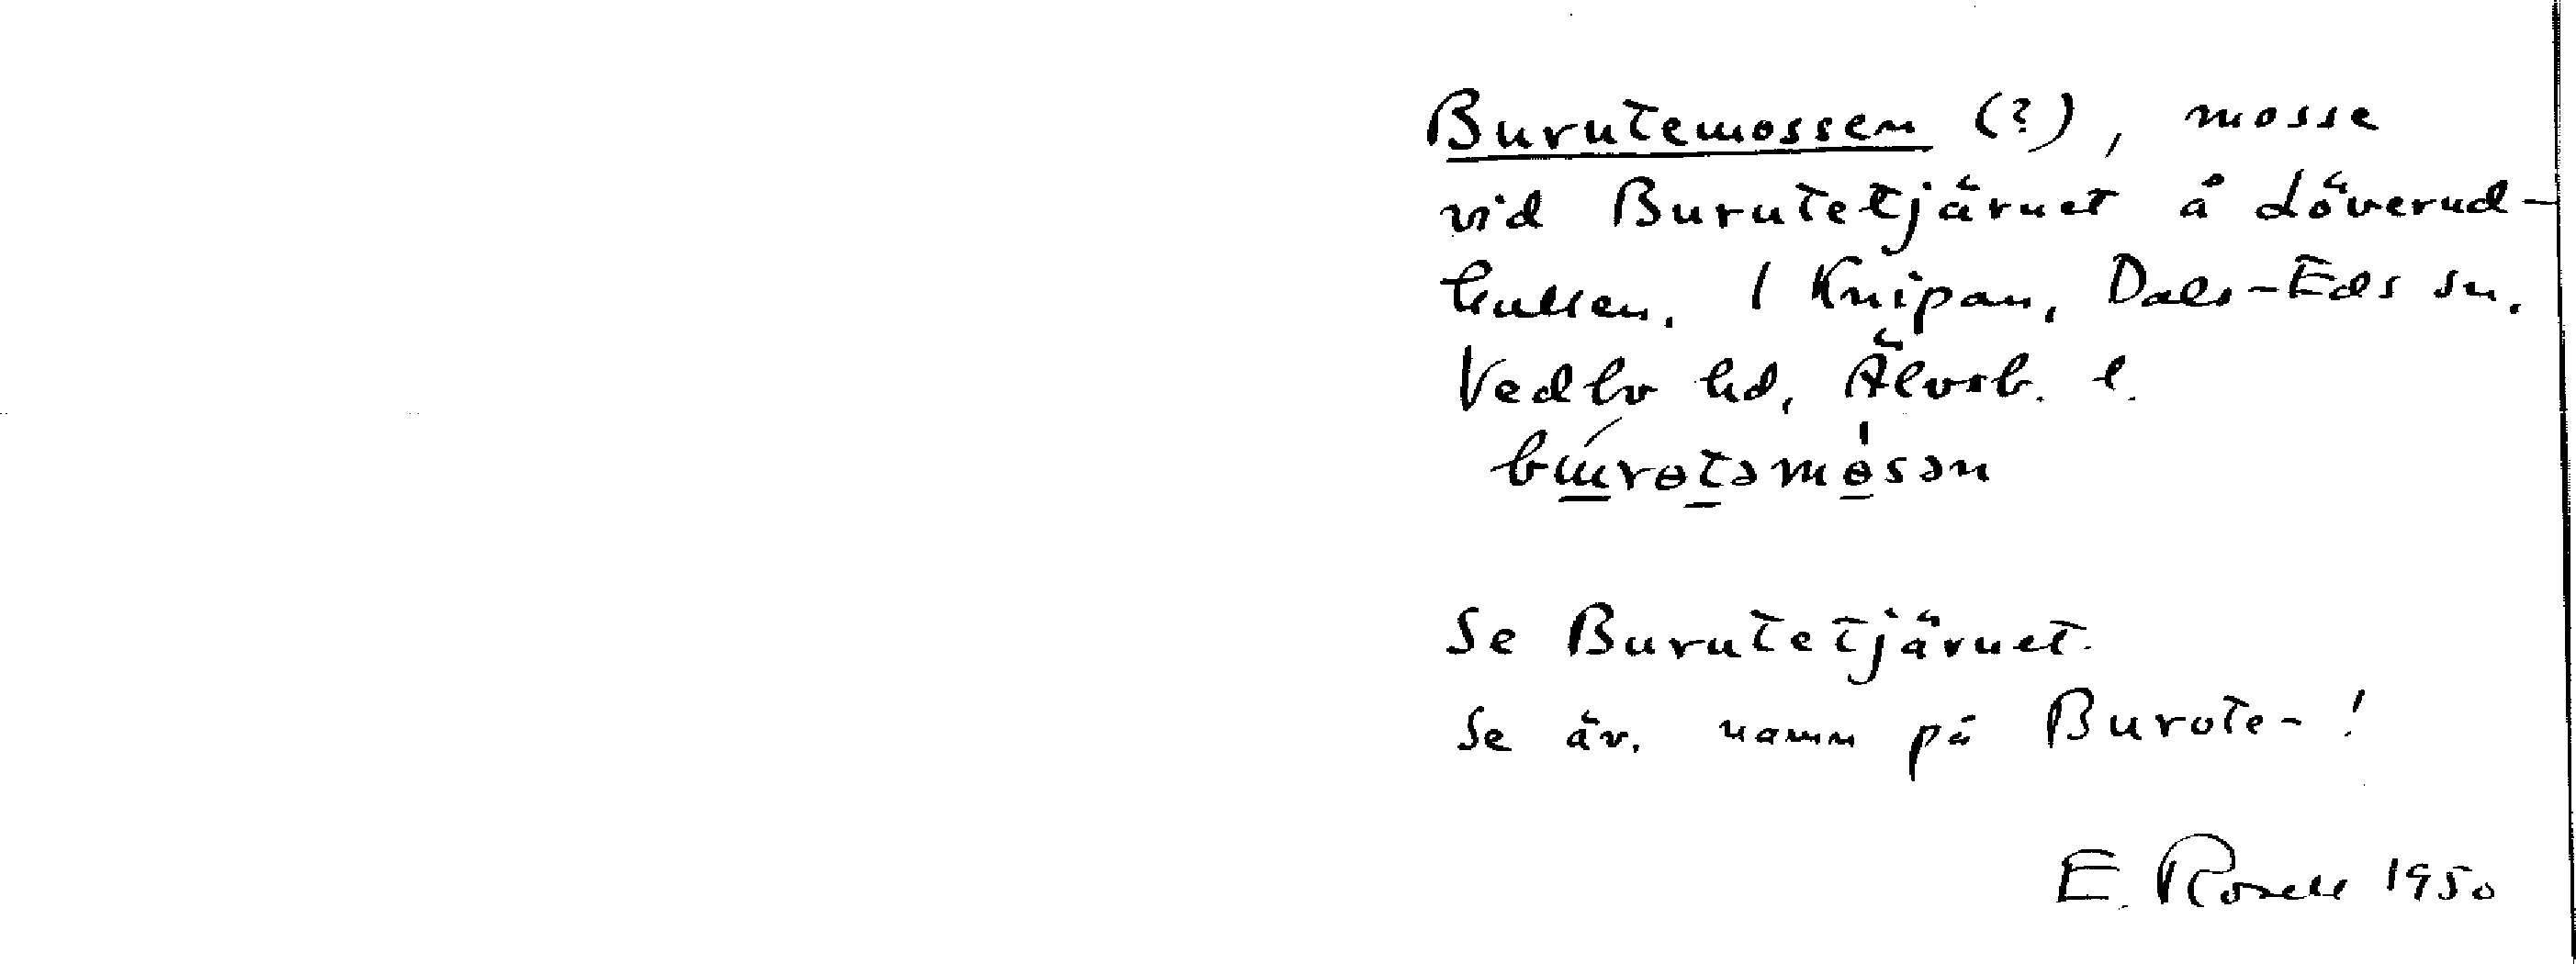 Burutemossen (?), mosse
vid Burutetjärnet å Löverud-
kullen. 1 Knipan, Dals-Eds sn.
Vedbo hd, Älvsb. l.
bɯrɵtəmɵ̀sən
Se Burutetjärnet.
Se äv. namn på Burote-!
E. Rosell 1950